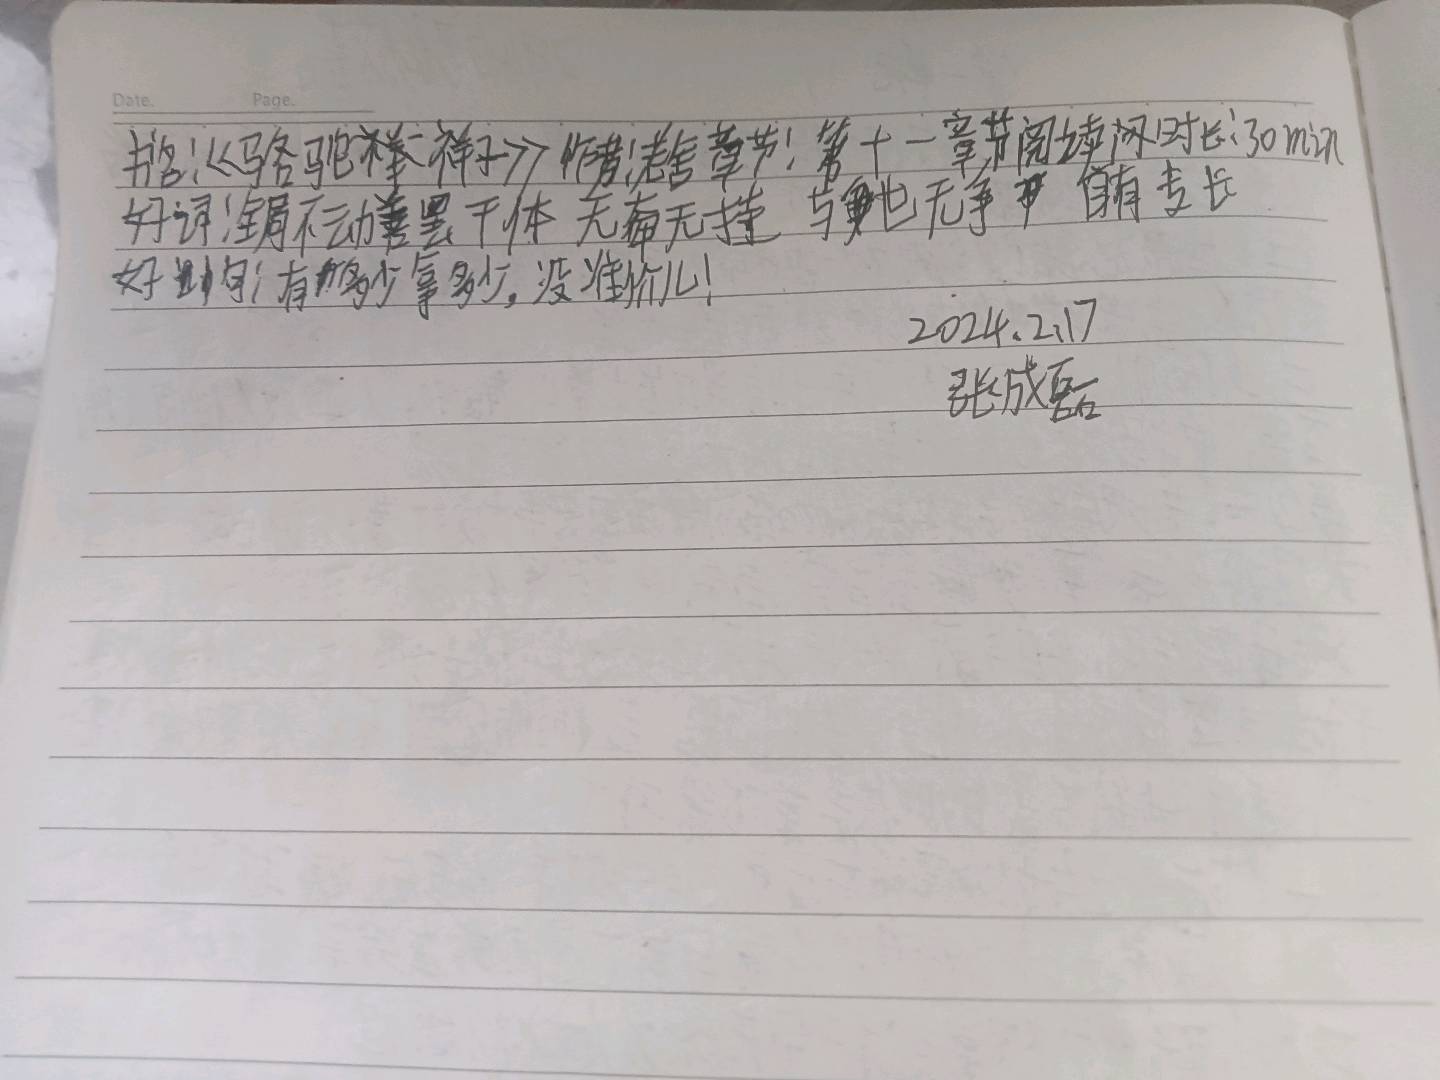 Date. Page.
书名:《骆驼祥子》作者:老舍 章节:第十一章节阅读时长:30min
好词:锅不动 善罢干休 无着无 与她无争 自有专长
好句:有多少拿多少,没准价儿!
2024.2.17
张成磊